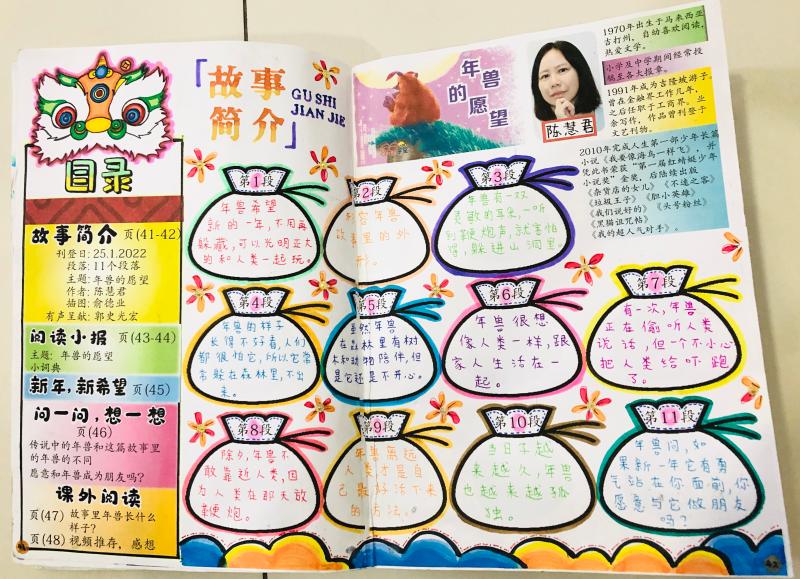 目录
故事简介 页(41-42)
刊登日: 25.1.2022
段落: 11个段落
主题: 年兽的愿望
作者: 陈慧君
插图: 俞德业
有声呈献: 郭史光宏
阅读小报 页(43-44)
主题: 年兽的愿望
小词典
新年,新希望 页(45)
问一问,想一想
页(46)
传说中的年兽和这篇故事里
的年兽的不同
愿意和年兽成为朋友吗?
课外阅读
页(47) 故事里年兽长什么
样子?
页(48) 视频推荐,感想
「故事
简介」
GU SHI
JIAN JIE
年兽
的愿望
陈慧君
1970年出生于马来西亚
吉打州,自幼喜欢阅读,
热爱文学。
小学及中学期间经常投
稿至各大报章。
1991年成为吉隆坡游子。
曾在金融界工作几年,
之后任职于工商界。业
余写作,作品曾刊登于
文艺刊物。
2010年完成人生第一部少年长篇
小说《我要像海鸟一样飞》,并
凭此书荣获“第一届红蜻蜓少年
小说奖”金奖,后陆续出版
《杂货店的女儿》《不速之客》
《垃圾王子》《胆小英雄》
《我们说好的》《头号粉丝》
《黑猫诅咒帖》
《我的超人对手》。
第1段
年兽希望
新的一年,不用再
躲藏,可以光明正大
的和人类一起玩。
第2段
形容年兽
故事里的外
形。
第3段
年兽有一双
灵敏的耳朵,一听
到鞭炮声就害怕
得,躲进山洞里。
第4段
年兽的样子
长得不好看,人们
都很怕它,所以它常
常躲在森林里,不出
来。
第5段
虽然年兽
在森林里有树
木和动物陪伴,但
是它还是不开心。
第6段
年兽很想
像人类一样,跟
家人生活在一
起。
第7段
有一次,年兽
正在偷听人类
说话,但一个不小心
把人类给吓跑
了。
第8段
除夕,年兽不
敢靠近人类,因
为人类在那天放
鞭炮。
第9段
年兽点远
人类才是自
己最好活下来
的方法。
第10段
当日子越
来越久,年兽
也越来越孤
独。
第11段
年兽问,如
果新一年它有勇
气站在你面前,你
愿意与它做朋友
吗?
42